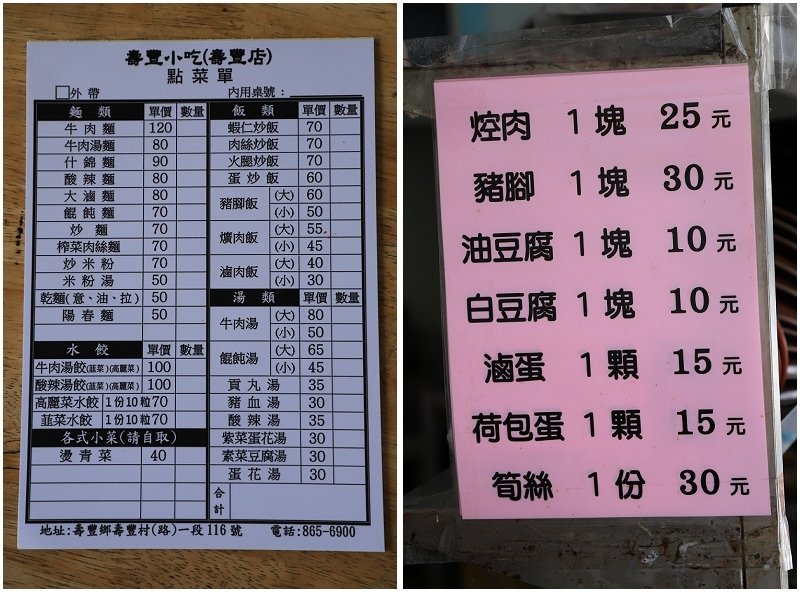 壽豐小吃(壽豐店)
點菜單
外帶 內用桌號：
麵類 單價 數量
牛肉麵 120
牛肉湯麵 80
什錦麵 90
酸辣麵 80
大滷麵 80
餛飩麵 70
炒麵 70
榨菜肉絲麵 70
炒米粉 70
米粉湯 50
乾麵(意、油、拉) 50
陽春麵 50
水餃 單價 數量
牛肉湯餃(韮菜)(高麗菜) 100
酸辣湯餃(韮菜)(高麗菜) 100
高麗菜水餃 1份10粒 70
韮菜水餃 1份10粒 70
各式小菜(請自取)
燙青菜 40
飯類 單價 數量
蝦仁炒飯 70
肉絲炒飯 70
火腿炒飯 70
蛋炒飯 60
豬腳飯 (大) 60
(小) 50
爌肉飯 (大) 55
(小) 45
滷肉飯 (大) 40
(小) 30
湯類 單價 數量
牛肉湯 (大) 80
(小) 50
餛飩湯 (大) 65
(小) 45
貢丸湯 35
豬血湯 30
酸辣湯 35
紫菜蛋花湯 30
素菜豆腐湯 30
蛋花湯 30
合計
地址:壽豐鄉壽豐村(路)一段116號 電話:865-6900
焢肉 1塊 25元
豬腳 1塊 30元
油豆腐 1塊 10元
白豆腐 1塊 10元
滷蛋 1顆 15元
荷包蛋 1顆 15元
筍絲 1份 30元